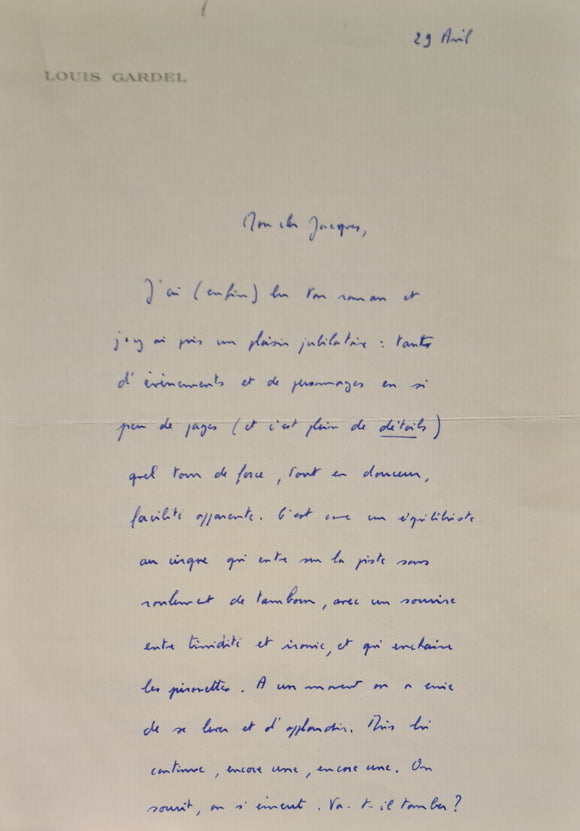 29 Avril
LOUIS GARDEL
Mon cher Jacques,
J'ai (enfin) lu ton roman et
j'y ai pris un plaisir jubilatoire : tants
d'évènements et de personnages en si
peu de pages (et c'est plein de détails)
quel tour de force, tout en douceur,
facilité apparente. C'est un équilibriste
au cirque qui entre sur la piste sans
roulement de tambour, avec un sourire
entre timidité et ironie, et qui enchaine
les pirouettes. A un moment on a envie
de se lever et d'applaudir. Mais lui
continue, encore une, encore une. On
sourit, on s'émeut. Va-t-il tomber ?